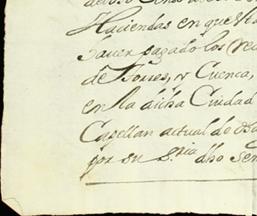 Haciendas en que
hauer pagado los
de Torres, y Cuenca,
en la dicha Ciudad
Capellan actual de
por su S.ria dho Señ